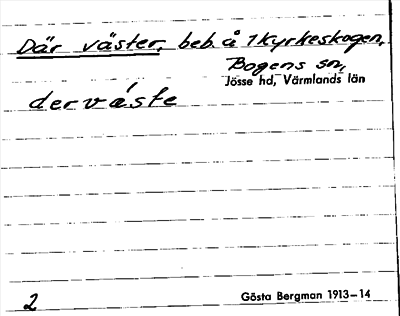 Där väster, beb. å 1 Kyrkeskogen,
Bogens sn,
Jösse hd, Värmlands län
derváste
2
Gösta Bergman 1913–14